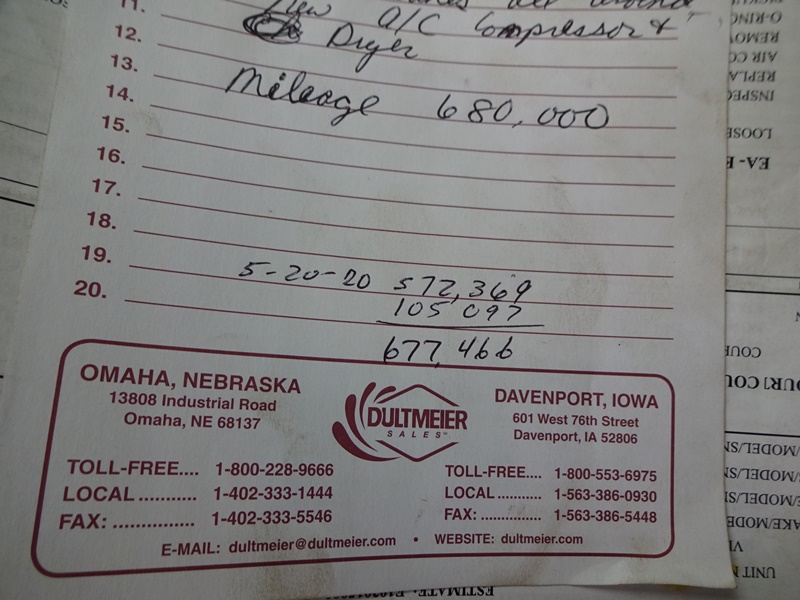 11.
New A/C Compressor &
12.
Dryer
13.
Mileage 680,000
14.
15.
16.
17.
18.
19.
5-20-20 572,369
20.
105 097
677,466
OMAHA, NEBRASKA
13808 Industrial Road
Omaha, NE 68137
TOLL-FREE.... 1-800-228-9666
LOCAL ........... 1-402-333-1444
FAX: ............... 1-402-333-5546
DULTMEIER
SALES
DAVENPORT, IOWA
601 West 76th Street
Davenport, IA 52806
TOLL-FREE.... 1-800-553-6975
LOCAL ........... 1-563-386-0930
FAX: ............... 1-563-386-5448
E-MAIL: dultmeier@dultmeier.com • WEBSITE: dultmeier.com
O-RING
REMOV
AIR CO
REPLA
INSPEC
LOOSE
EA- E
COUR
MODEL/SN
MODEL/SN
MODEL/SN
UNIT N
ESTIMATE: